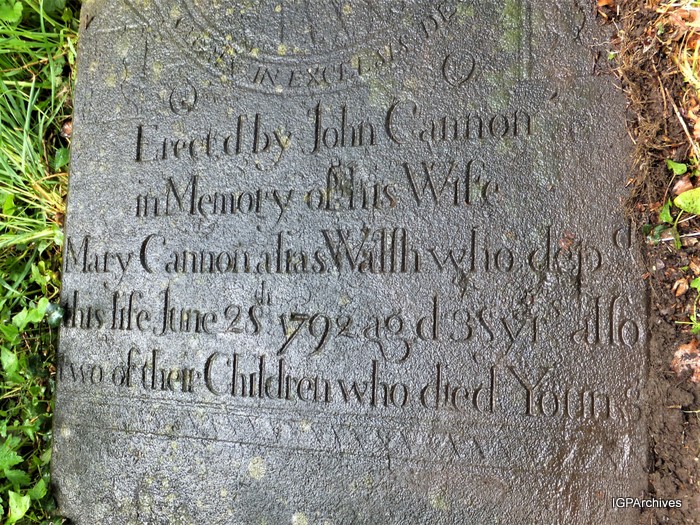 IN EXCLESIS DE
Erect'd by John Cannon
in Memory of his Wife
Mary Cannon alias Walſh who dep'd
this life June 28th 1792 ag'd 38 yrs alſo
two of their Children who died Young
IGPArchives